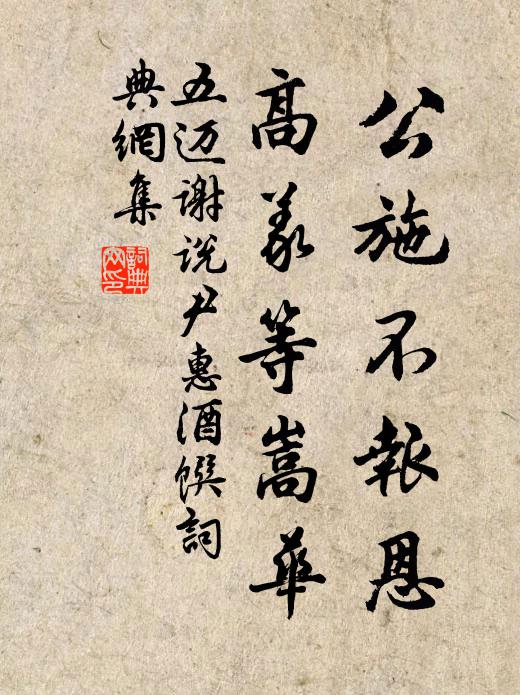 公施不報恩
高義等嵩華
五迈謝说尹惠酒饌詞
典網集
詞典
网印